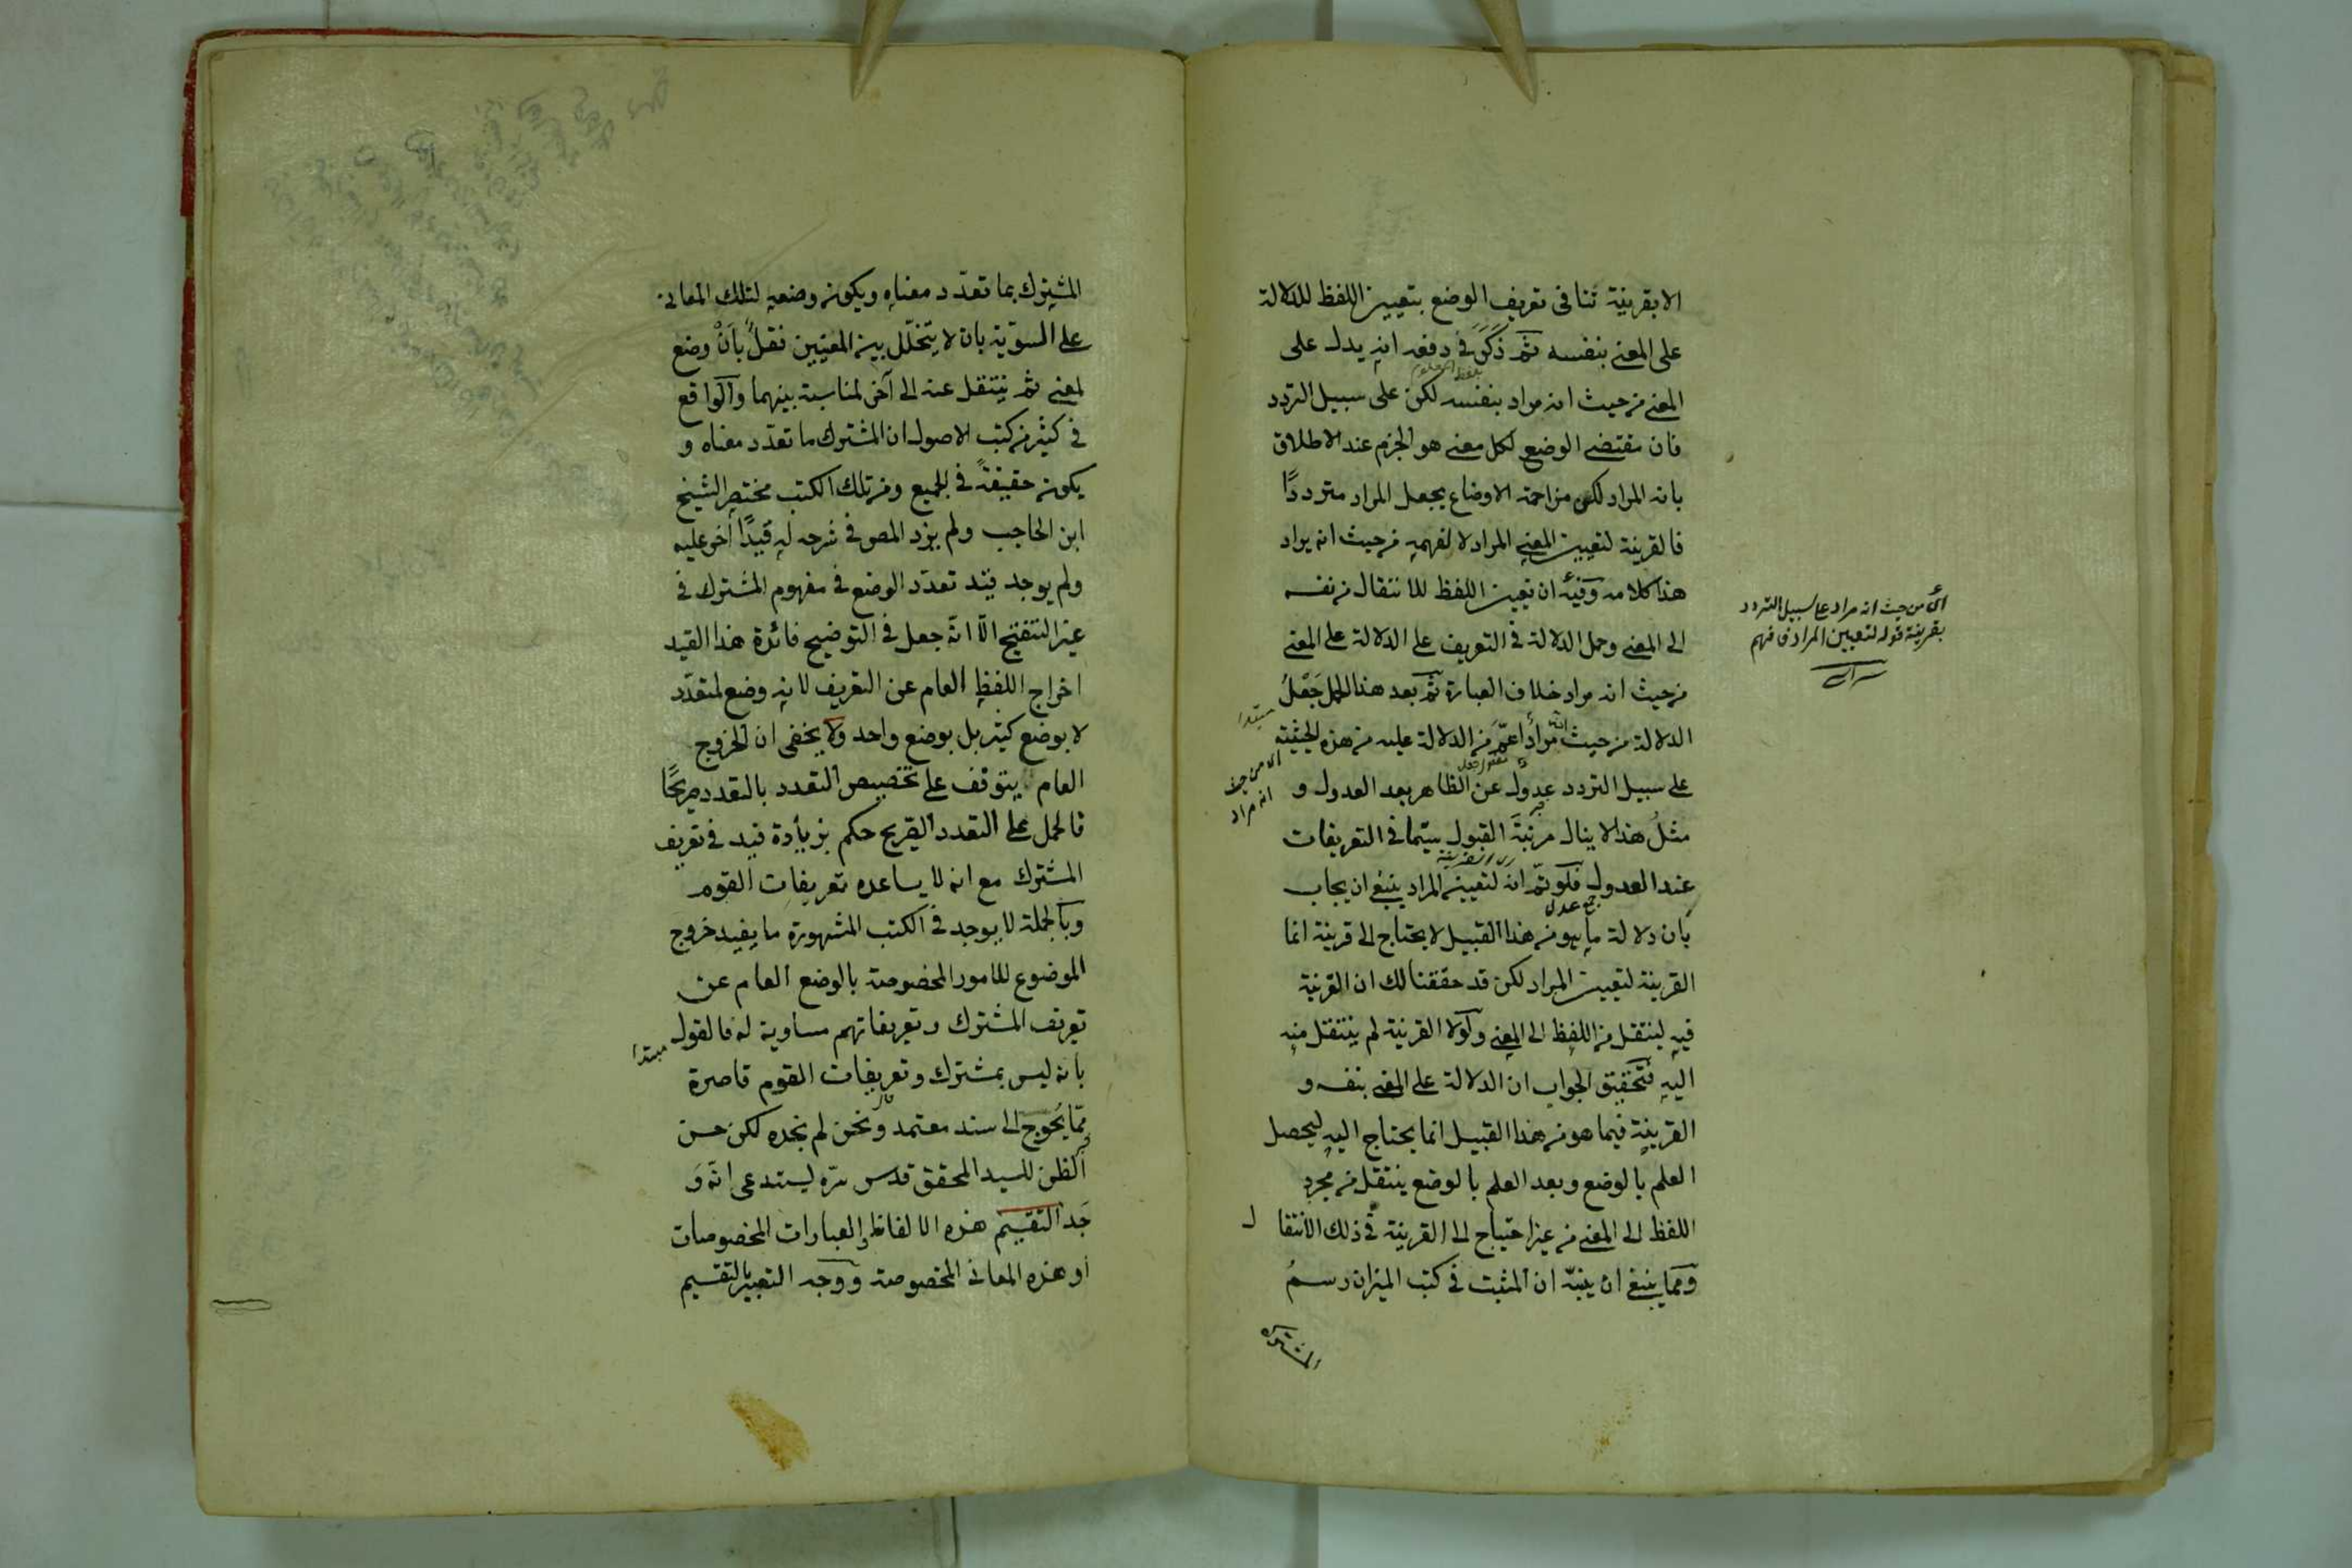 الا بقرينة تنافى تعريف الوضع بتعيين اللفظ للدلالة
على المعنى بنفسه ثم ذكر فى دفعه انه يدل على
المعنى من حيث انه مراد بنفسه لكن على سبيل التردد
فان مقتضى الوضع لكل معنى هو الجزم عند الاطلاق
بانه المراد لكن مزاحمة الاوضاع يجعل المراد مترددًا
فالقرينة لتعيين المعنى المراد لا لفهمه من حيث انه يراد
هذا كلامه وفيه ان تعيين اللفظ للانتقال من نفسه
الى المعنى وحمل الدلالة فى التعريف على الدلالة على المعنى
من حيث انه مراد خلاف العبارة ثم بعد هذا الحمل جَعْلُ
مبتدا
الدلالة من حيث انه مراد اعمّ من الدلالة عليه من هذه الحيثية
اى من حيث
انه مراد
على سبيل التردد عدول عن الظاهر بعد العدول و
مثلُ هذا لا ينال مرتبةَ القبول سيّما فى التعريفات
عند العدول فلو تمّ ان لتعيين المراد ينبغى ان يجاب
جمع عدل
بان دلالة ما هو من هذا القبيل لا يحتاج الى قرينة انما
القرينة لتعيين المراد لكن قد حققنا لك ان القرينة
فيه لينتقل من اللفظ الى المعنى ولولا القرينة لم ينتقل منه
اليه فتحقيق الجواب ان الدلالة على المعنى بنفسه و
القرينة فيما هو من هذا القبيل انما يحتاج اليه ليحصل
العلم بالوضع وبعد العلم بالوضع ينتقل من مجرد
اللفظ الى المعنى من غير احتياج الى القرينة فى ذلك الانتقا ل
ومما ينبغى ان ينبّه ان المثبت فى كتب الميزان رسمُ
المشترك
اى من حيث انه مراد على سبيل التردد
بقرينة قوله لتعيين المراد فافهم
المشترك بما تعدّد معناه ويكون وضعه لتلك المعانى
على السويّة بان لا يتخلّل بين المعنيين نقلٌ بأنْ وضع
لمعنى ثم ينتقل عنه الى آخر لمناسبة بينهما والواقع
فى كثير من كتب الاصول ان المشترك ما تعدّد معناه و
يكون حقيقةً فى الجميع ومن تلك الكتب مختصر الشيخ
ابن الحاجب ولم يزد المص فى شرحه له قيدًا آخر عليه
ولم يوجد قيد تعدّد الوضع فى مفهوم المشترك فى
غير التنقيح الّا انّه جعل فى التوضيح فائدة هذا القيد
اخراج اللفظ العام عن التعريف لانه وضع لمتعدّد
لا بوضع كثير بل بوضع واحد ولا يخفى ان الخروج
العام يتوقف على تخصيص التعدد بالتعدد صريحًا
فالحمل على التعدد الصريح حكم بزيادة قيد فى تعريف
المشترك مع انه لا يساعده تعريفات القوم
وبالجملة لا يوجد فى الكتب المشهورة ما يفيد خروج
الموضوع للامور المخصوصة بالوضع العام عن
تعريف المشترك وتعريفاتهم مساوية له فالقول
مبتدا
بانه ليس بمشترك وتعريفات القوم قاصرة
ممّا يُحوِج الى سند معتمد ونحن لم نجده لكن حسن
الظن للسيد المحقق قدس سرّه ليستدعى انّه وَ
جَد التقسيم هذه الالفاظ والعبارات المخصوصات
او هذه المعانى المخصوصة ووجه التعبير بالتقسيم